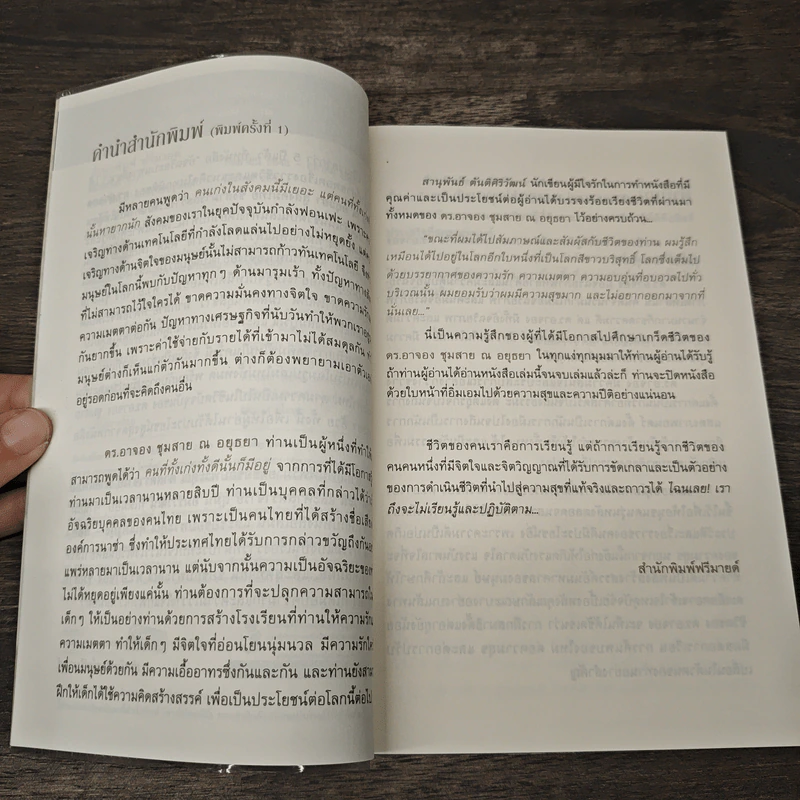 คำนำสำนักพิมพ์ (พิมพ์ครั้งที่ 1)
มีหลายคนพูดว่า คนเก่งในสังคมนี้มีเยอะ แต่คนที่ทั้งเก่ง
นั้นหายากนัก สังคมของเราในยุคปัจจุบันกำลังฟอนเฟะ เพราะ
เจริญทางด้านเทคโนโลยีที่กำลังโลดแล่นไปอย่างไม่หยุดยั้ง แต่
เจริญทางด้านจิตใจของมนุษย์นั้นไม่สามารถก้าวทันเทคโนโลยี
มนุษย์ในโลกนี้พบกับปัญหาทุกๆ ด้านมารุมเร้า ทั้งปัญหาทาง
ที่ไม่สามารถไว้ใจใครได้ ขาดความมั่นคงทางจิตใจ ขาดความรัก
ความเมตตาต่อกัน ปัญหาทางเศรษฐกิจที่นับวันทำให้พวกเรา
กันยากขึ้น เพราะค่าใช้จ่ายกับรายได้ที่เข้ามาไม่ได้สมดุลกัน
มนุษย์ต่างก็เห็นแก่ตัวกันมากขึ้น ต่างก็ต้องพยายามเอาตัว
อยู่รอดก่อนที่จะคิดถึงคนอื่น
ดร.อาจอง ชุมสาย ณ อยุธยา ท่านเป็นผู้หนึ่งที่ทำให้
สามารถพูดได้ว่า คนที่ทั้งเก่งทั้งดีนั้นก็มีอยู่ จากการที่ได้มีโอกาส
ท่านมาเป็นเวลานานหลายสิบปี ท่านเป็นบุคคลที่กล่าวได้ว่า
อัจฉริยบุคคลของคนไทย เพราะเป็นคนไทยที่ได้สร้างชื่อเสีย
องค์การนาซ่า ซึ่งทำให้ประเทศไทยได้รับการกล่าวขวัญถึงกัน
แพร่หลายมาเป็นเวลานาน แต่นับจากนั้นความเป็นอัจฉริยะของ
ไม่ได้หยุดอยู่เพียงแค่นั้น ท่านต้องการที่จะปลุกความสามารถใน
เด็กๆ ให้เป็นอย่างท่านด้วยการสร้างโรงเรียนที่ท่านให้ความรัก
ความเมตตา ทำให้เด็กๆ มีจิตใจที่อ่อนโยนนุ่มนวล มีความรักให้
เพื่อนมนุษย์ด้วยกัน มีความเอื้ออาทรซึ่งกันและกัน และท่านยังสา
ฝึกให้เด็กได้ใช้ความคิดสร้างสรรค์ เพื่อเป็นประโยชน์ต่อโลกนี้ต่อไป
สานุพันธ์ ตันติศิริวัฒน์ นักเขียนผู้มีใจรักในการทำหนังสือที่มี
คุณค่าและเป็นประโยชน์ต่อผู้อ่านได้บรรจงร้อยเรียงชีวิตที่ผ่านมา
ทั้งหมดของ ดร.อาจอง ชุมสาย ณ อยุธยา ไว้อย่างครบถ้วน...
"ขณะที่ผมได้ไปสัมภาษณ์และสัมผัสกับชีวิตของท่าน ผมรู้สึก
เหมือนได้ไปอยู่ในโลกอีกใบหนึ่งที่เป็นโลกสีขาวบริสุทธิ์ โลกซึ่งเต็มไป
ด้วยบรรยากาศของความรัก ความเมตตา ความอบอุ่นที่อบอวลไปทั่ว
บริเวณนั้น ผมยอมรับว่าผมมีความสุขมาก และไม่อยากออกมาจากที่
นั่นเลย..."
นี่เป็นความรู้สึกของผู้ที่ได้มีโอกาสไปศึกษาเกร็ดชีวิตของ
ดร.อาจอง ชุมสาย ณ อยุธยา ในทุกแง่ทุกมุมมาให้ท่านผู้อ่านได้รับรู้
ถ้าท่านผู้อ่านได้อ่านหนังสือเล่มนี้จนจบเล่มแล้วล่ะก็ ท่านจะปิดหนังสือ
ด้วยใบหน้าที่อิ่มเอมไปด้วยความสุขและความปีติอย่างแน่นอน
ชีวิตของคนเราคือการเรียนรู้ แต่ถ้าการเรียนรู้จากชีวิตของ
คนคนหนึ่งที่มีจิตใจและจิตวิญญาณที่ได้รับการขัดเกลาและเป็นตัวอย่าง
ของการดำเนินชีวิตที่นำไปสู่ความสุขที่แท้จริงและถาวรได้ ไฉนเลย! เรา
ถึงจะไม่เรียนรู้และปฏิบัติตาม...
สำนักพิมพ์ฟรีมายด์